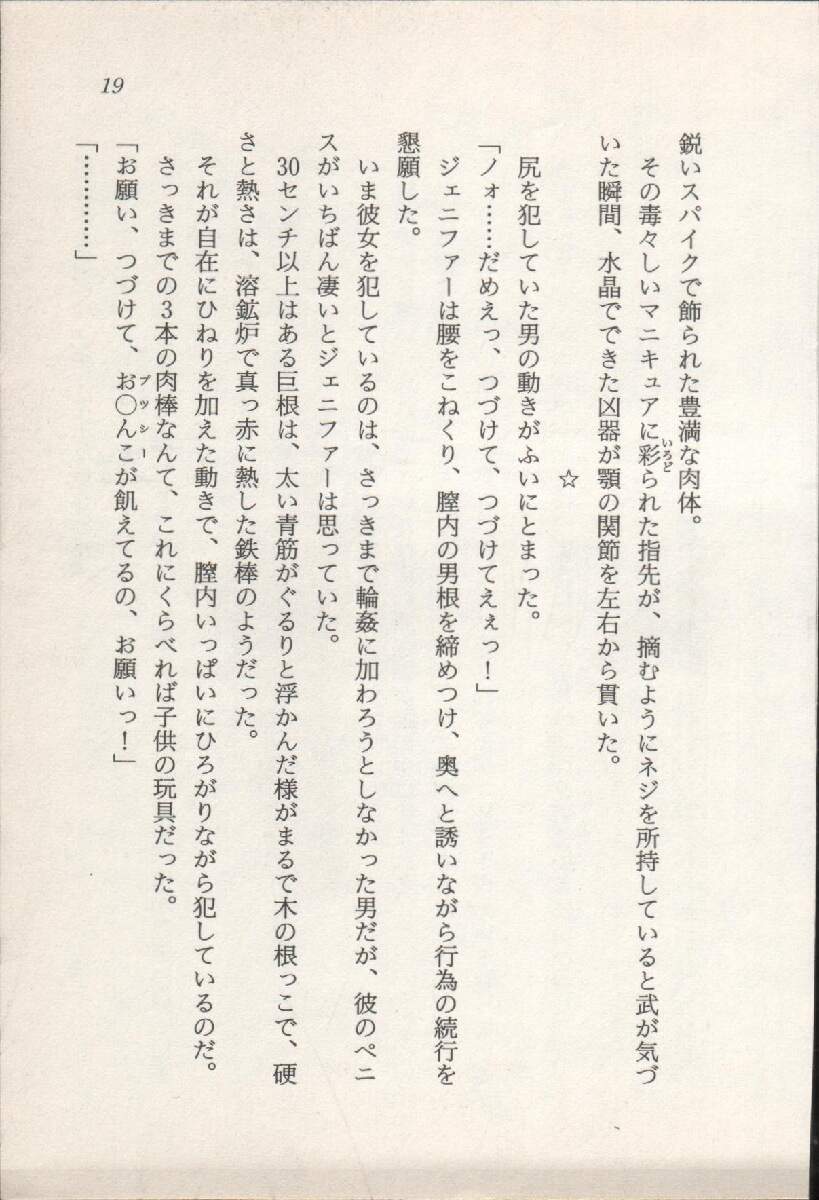 19
鋭いスパイクで飾られた豊満な肉体。
その毒々しいマニキュアに彩られた指先が、摘むようにネジを所持していると武が気づ
いた瞬間、水晶でできた凶器が顎の関節を左右から貫いた。
☆
尻を犯していた男の動きがふいにとまった。
「ノォ……だめえっ、つづけて、つづけてえぇっ！」
ジェニファーは腰をこねくり、膣内の男根を締めつけ、奥へと誘いながら行為の続行を
懇願した。
いま彼女を犯しているのは、さっきまで輪姦に加わろうとしなかった男だが、彼のペニ
スがいちばん凄いとジェニファーは思っていた。
30センチ以上はある巨根は、太い青筋がぐるりと浮かんだ様がまるで木の根っこで、硬
さと熱さは、溶鉱炉で真っ赤に熱した鉄棒のようだった。
それが自在にひねりを加えた動きで、膣内いっぱいにひろがりながら犯しているのだ。
さっきまでの3本の肉棒なんて、これにくらべれば子供の玩具だった。
「お願い、つづけて、お○んこが飢えてるの、お願いっ！」
「……………」
いろど
プッシー